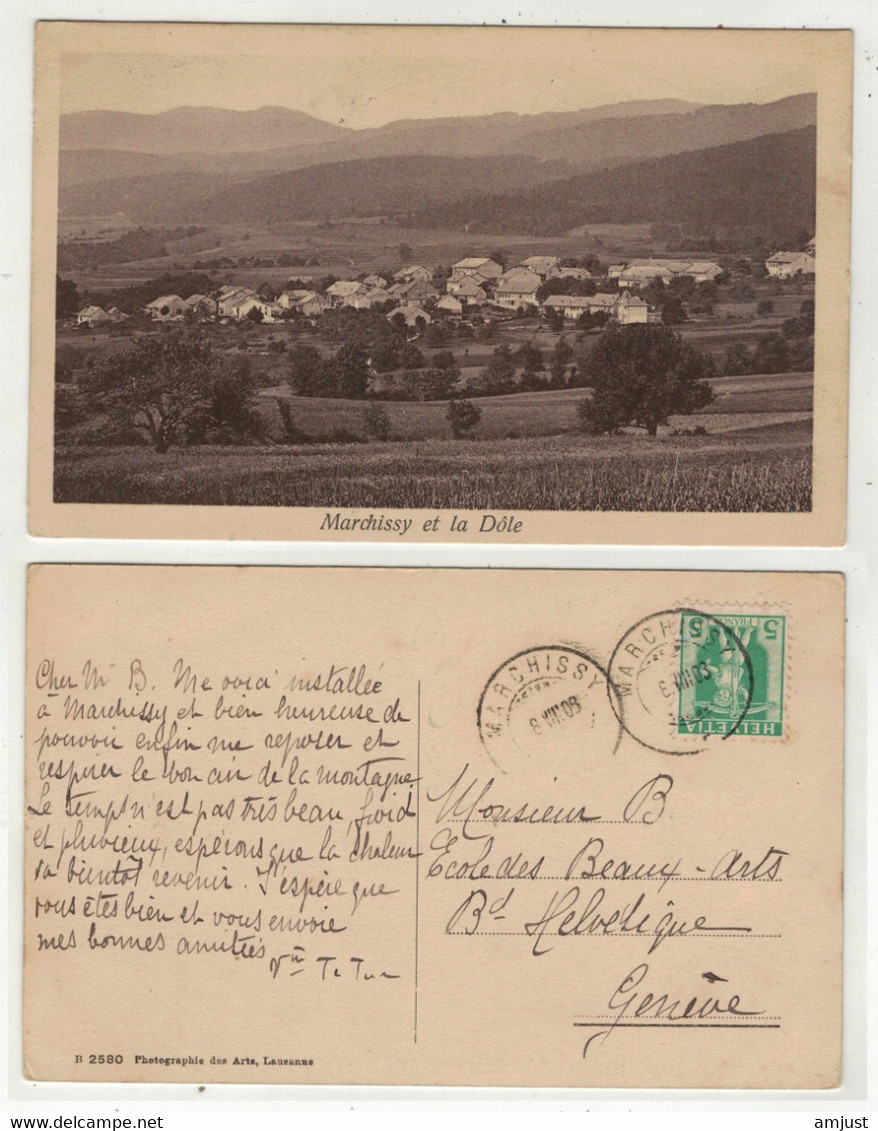 Marchissy et la Dôle
MARCHISSY
MARCHISSY
5 FRANCO 5
HELVETIA
Cher Mr B. Me voici installée
à Marchissy et bien heureuse de
pouvoir enfin me reposer et
respirer le bon air de la montagne.
Le temps n'est pas très beau, froid
et pluvieux, espérons que la chaleur
va bientôt revenir. J'espère que
vous êtes bien et vous envoie
mes bonnes amitiés
Monsieur B
Ecole des Beaux-Arts
Bd Helvétique
Genève
B 2580 Photographie des Arts, Lausanne
amjust
amjust